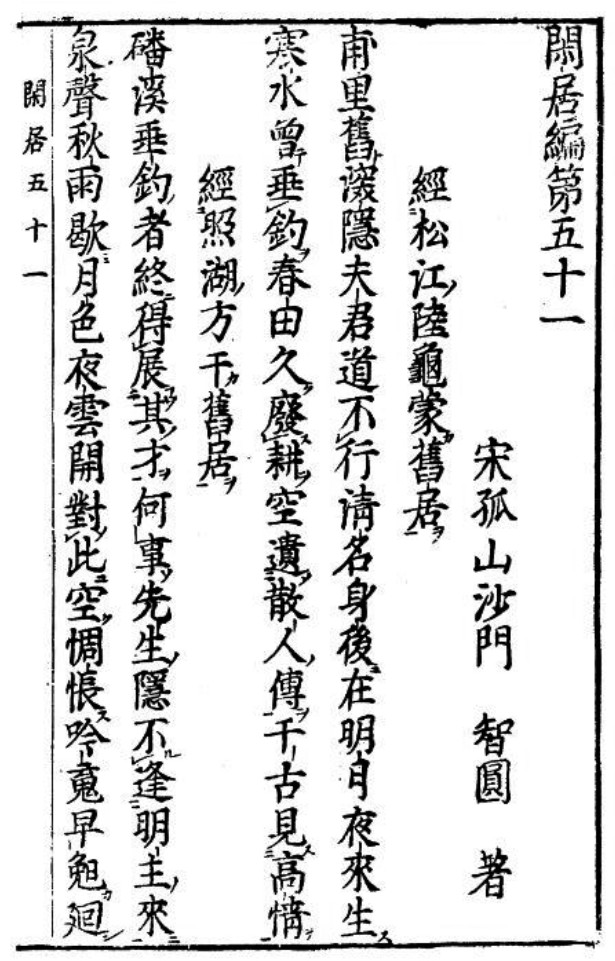 閑居編第五十一
宋孤山沙門 智圓 著
經松江陸龜蒙舊居
甫里舊深隱夫君道不行清名身後在明月夜來生
寒水曾垂釣春田久廢耕空遺散人傳千古見高情
經照湖方干舊居
磻溪垂釣者終得展其才何事先生隱不逢明主來
泉聲秋雨歇月色夜雲開對此空惆悵吟䰟早勉廻
閑居五十一